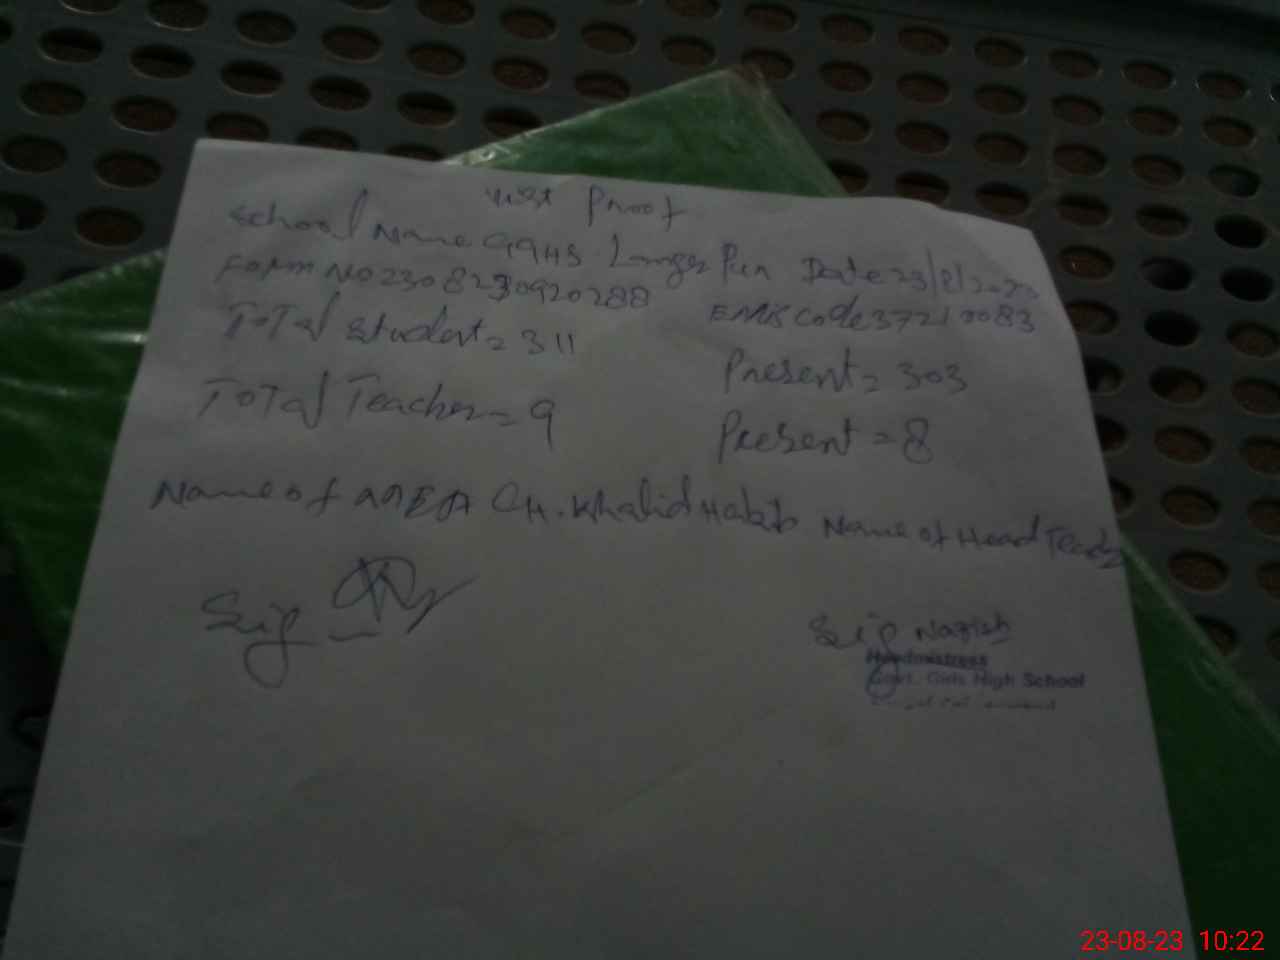 Visit Proof
School Name GGHS Langer Pur Date 23/8/2023
Form No 2308230920288 EMIS Code 37210083
Total Student = 311 Present = 303
Total Teacher = 9 Present = 8
Name of MEA CH. Khalid Habib Name of Head Teacher
Sig Sig Nazish
Headmistress
Govt. Girls High School
23-08-23 10:22